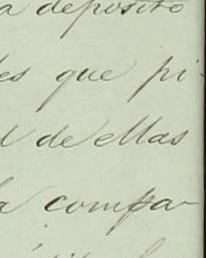 a deposito
es que pi-
l de ellas
a compa-